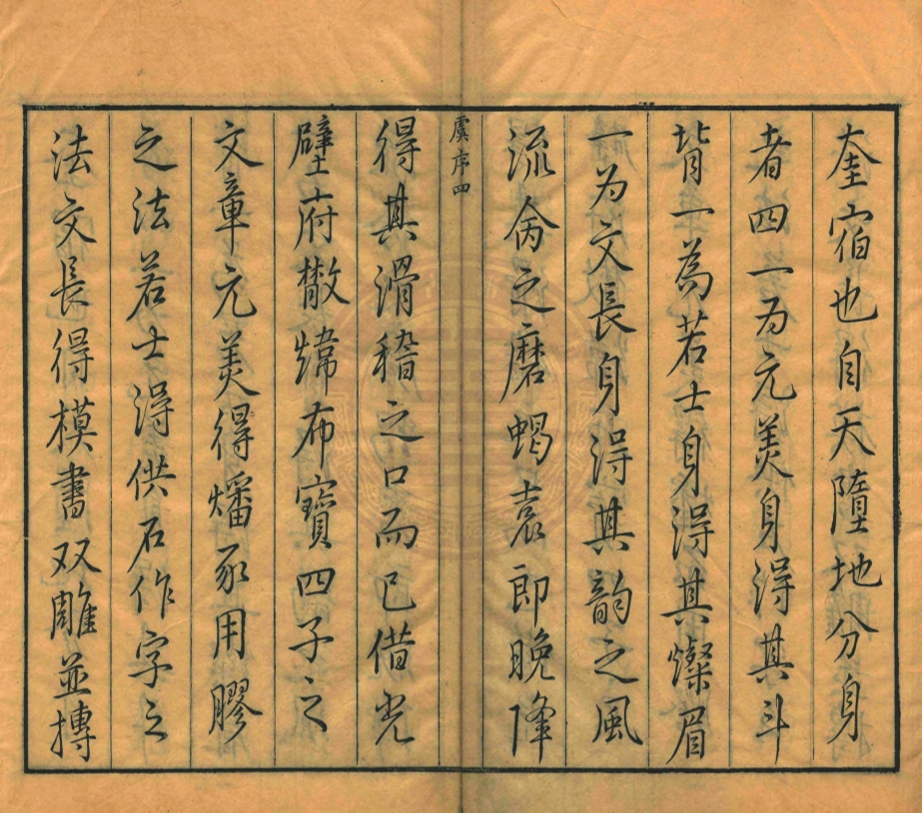 奎宿也自天墮地分身
者四一为元美身得其斗
背一為若士身得其燦眉
一为文長身得其韵之風
流俞之磨蝎袁即晚降
虞序四
得其滑稽之口而已借光
壁府散煒布寶四子之
文章元美得燔豕用膠
之法若士得供石作字之
法文長得模書双雕並摶